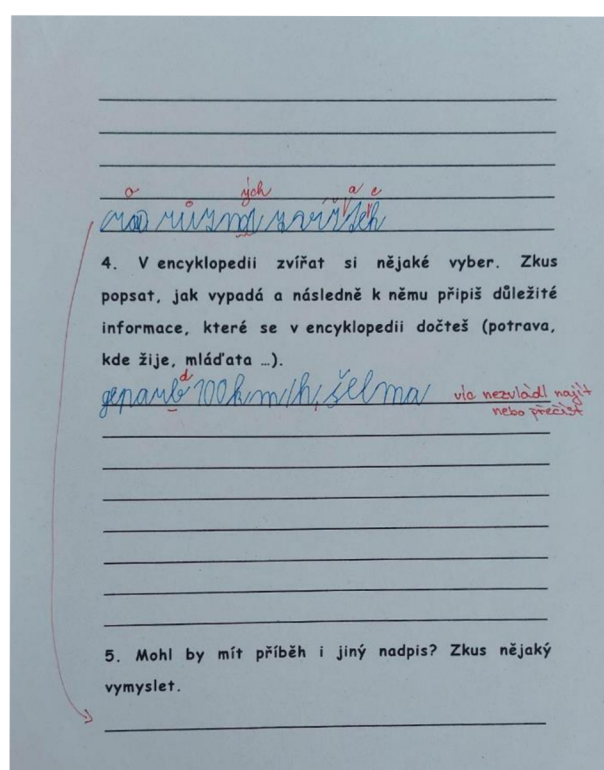 o ých a e
4. V encyklopedii zvířat si nějaké vyber. Zkus
popsat, jak vypadá a následně k němu připiš důležité
informace, které se v encyklopedii dočteš (potrava,
kde žije, mláďata …).
d
geparb 100km/h, šelma víc nezvládl najít
nebo přečíst
5. Mohl by mít příběh i jiný nadpis? Zkus nějaký
vymyslet.